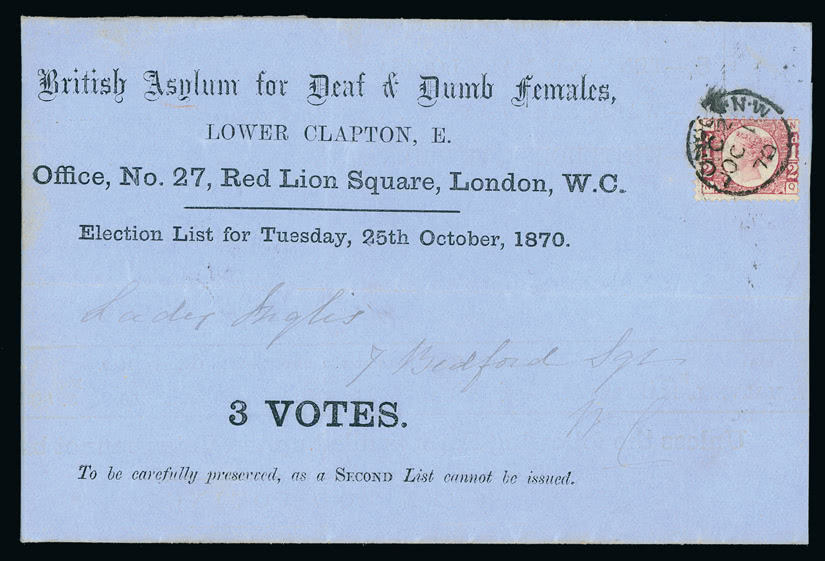 British Asylum for Deaf & Dumb Females,
LOWER CLAPTON, E.
Office, No. 27, Red Lion Square, London, W.C.
Election List for Tuesday, 25th October, 1870.
N.W
OC
70
Lady Inglis
7 Bedford Sqr
W C
3 VOTES.
To be carefully preserved, as a SECOND List cannot be issued.